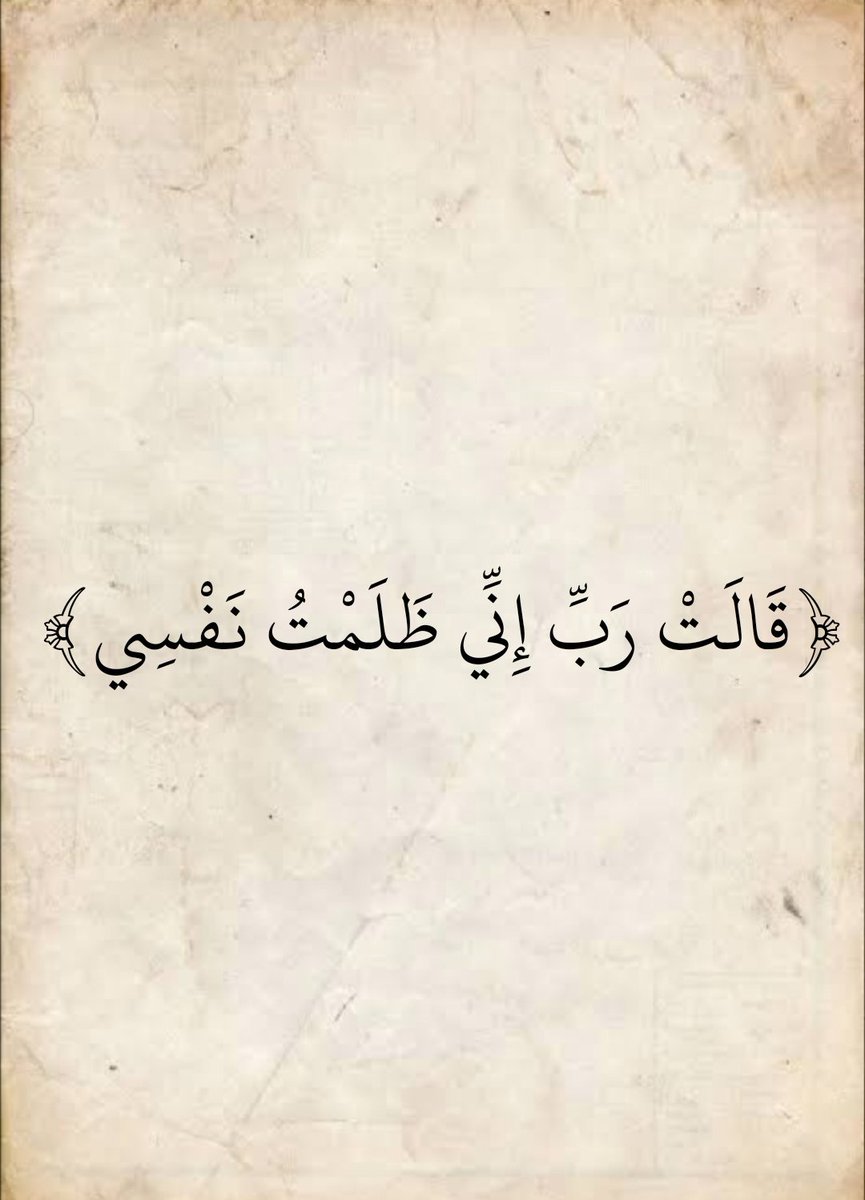 ﴿قَالَتْ رَبِّ إِنِّي ظَلَمْتُ نَفْسِي﴾